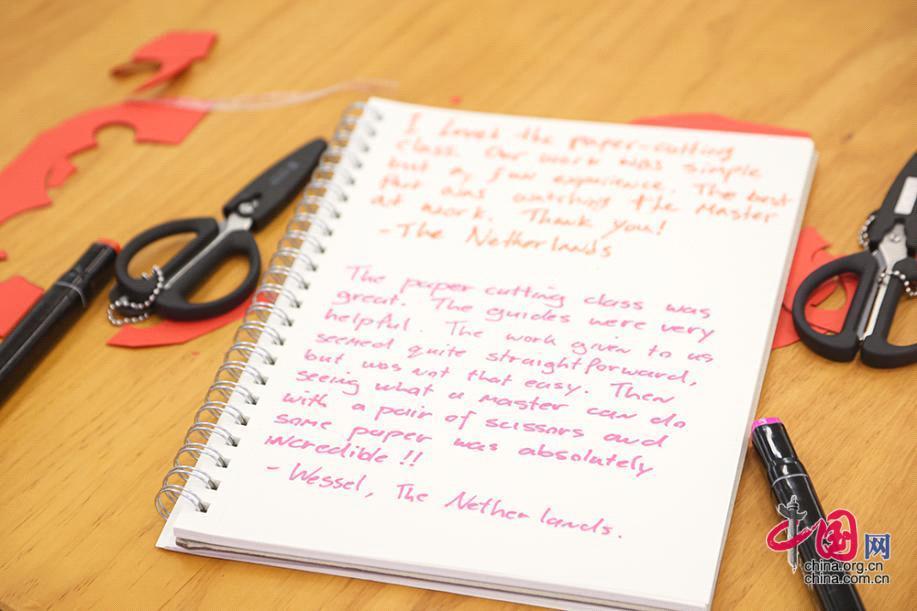 I loved the paper-cutting
class. Our work was simple
but a fun experience. The best
part was watching the Master
at work. Thank you!
- The Netherlands
The paper cutting class was
great. The guides were very
helpful. The work given to us
seemed quite straightforward,
but was not that easy. Then
seeing what a master can do
with a pair of scissors and
some paper was absolutely
incredible !!
- Wessel, The Netherlands.
中国网
china.org.cn
china.com.cn